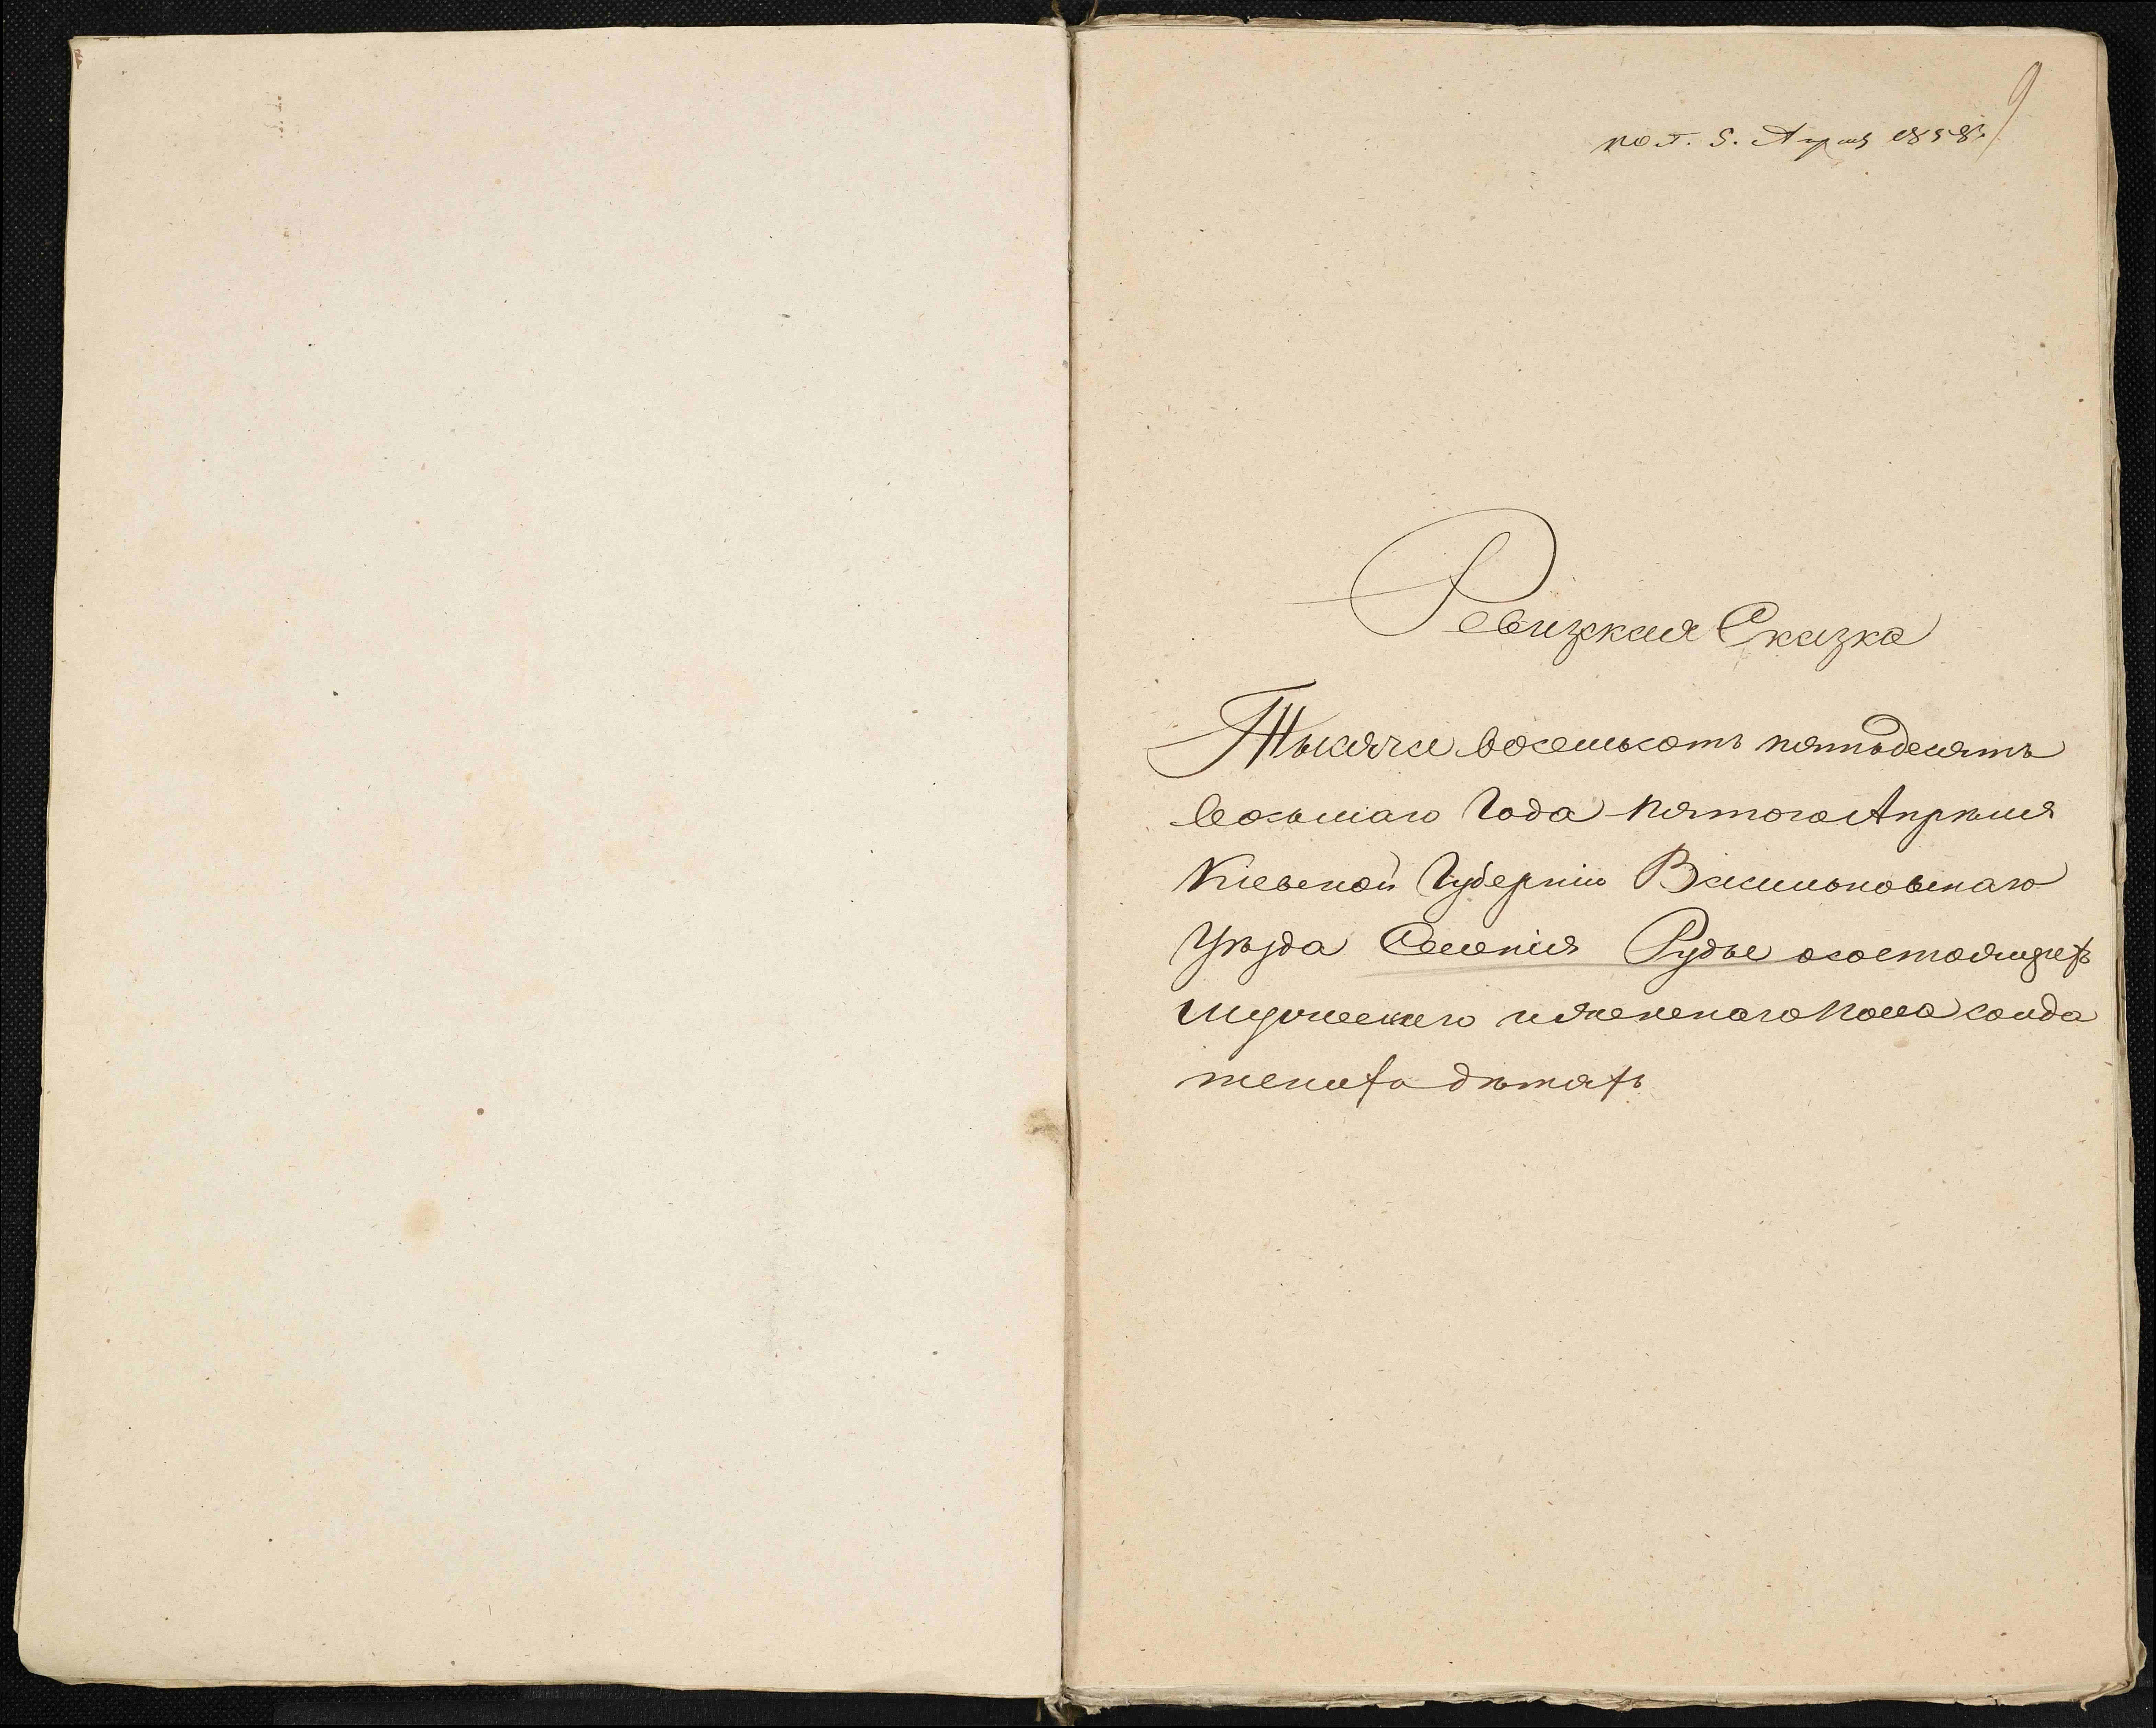 9
пол. 5. Апреля 1858 г.
Ревизкая Сказка
Тысяча восемьсотъ пятьдесятъ
восьмаго Года Пятого Апрѣля
Кіевской Губерніи Васильковскаго
Уѣзда Селенія Рудые осостоящихъ
мужескаго и женскаго пола солда
тскихъ дѣтяхъ